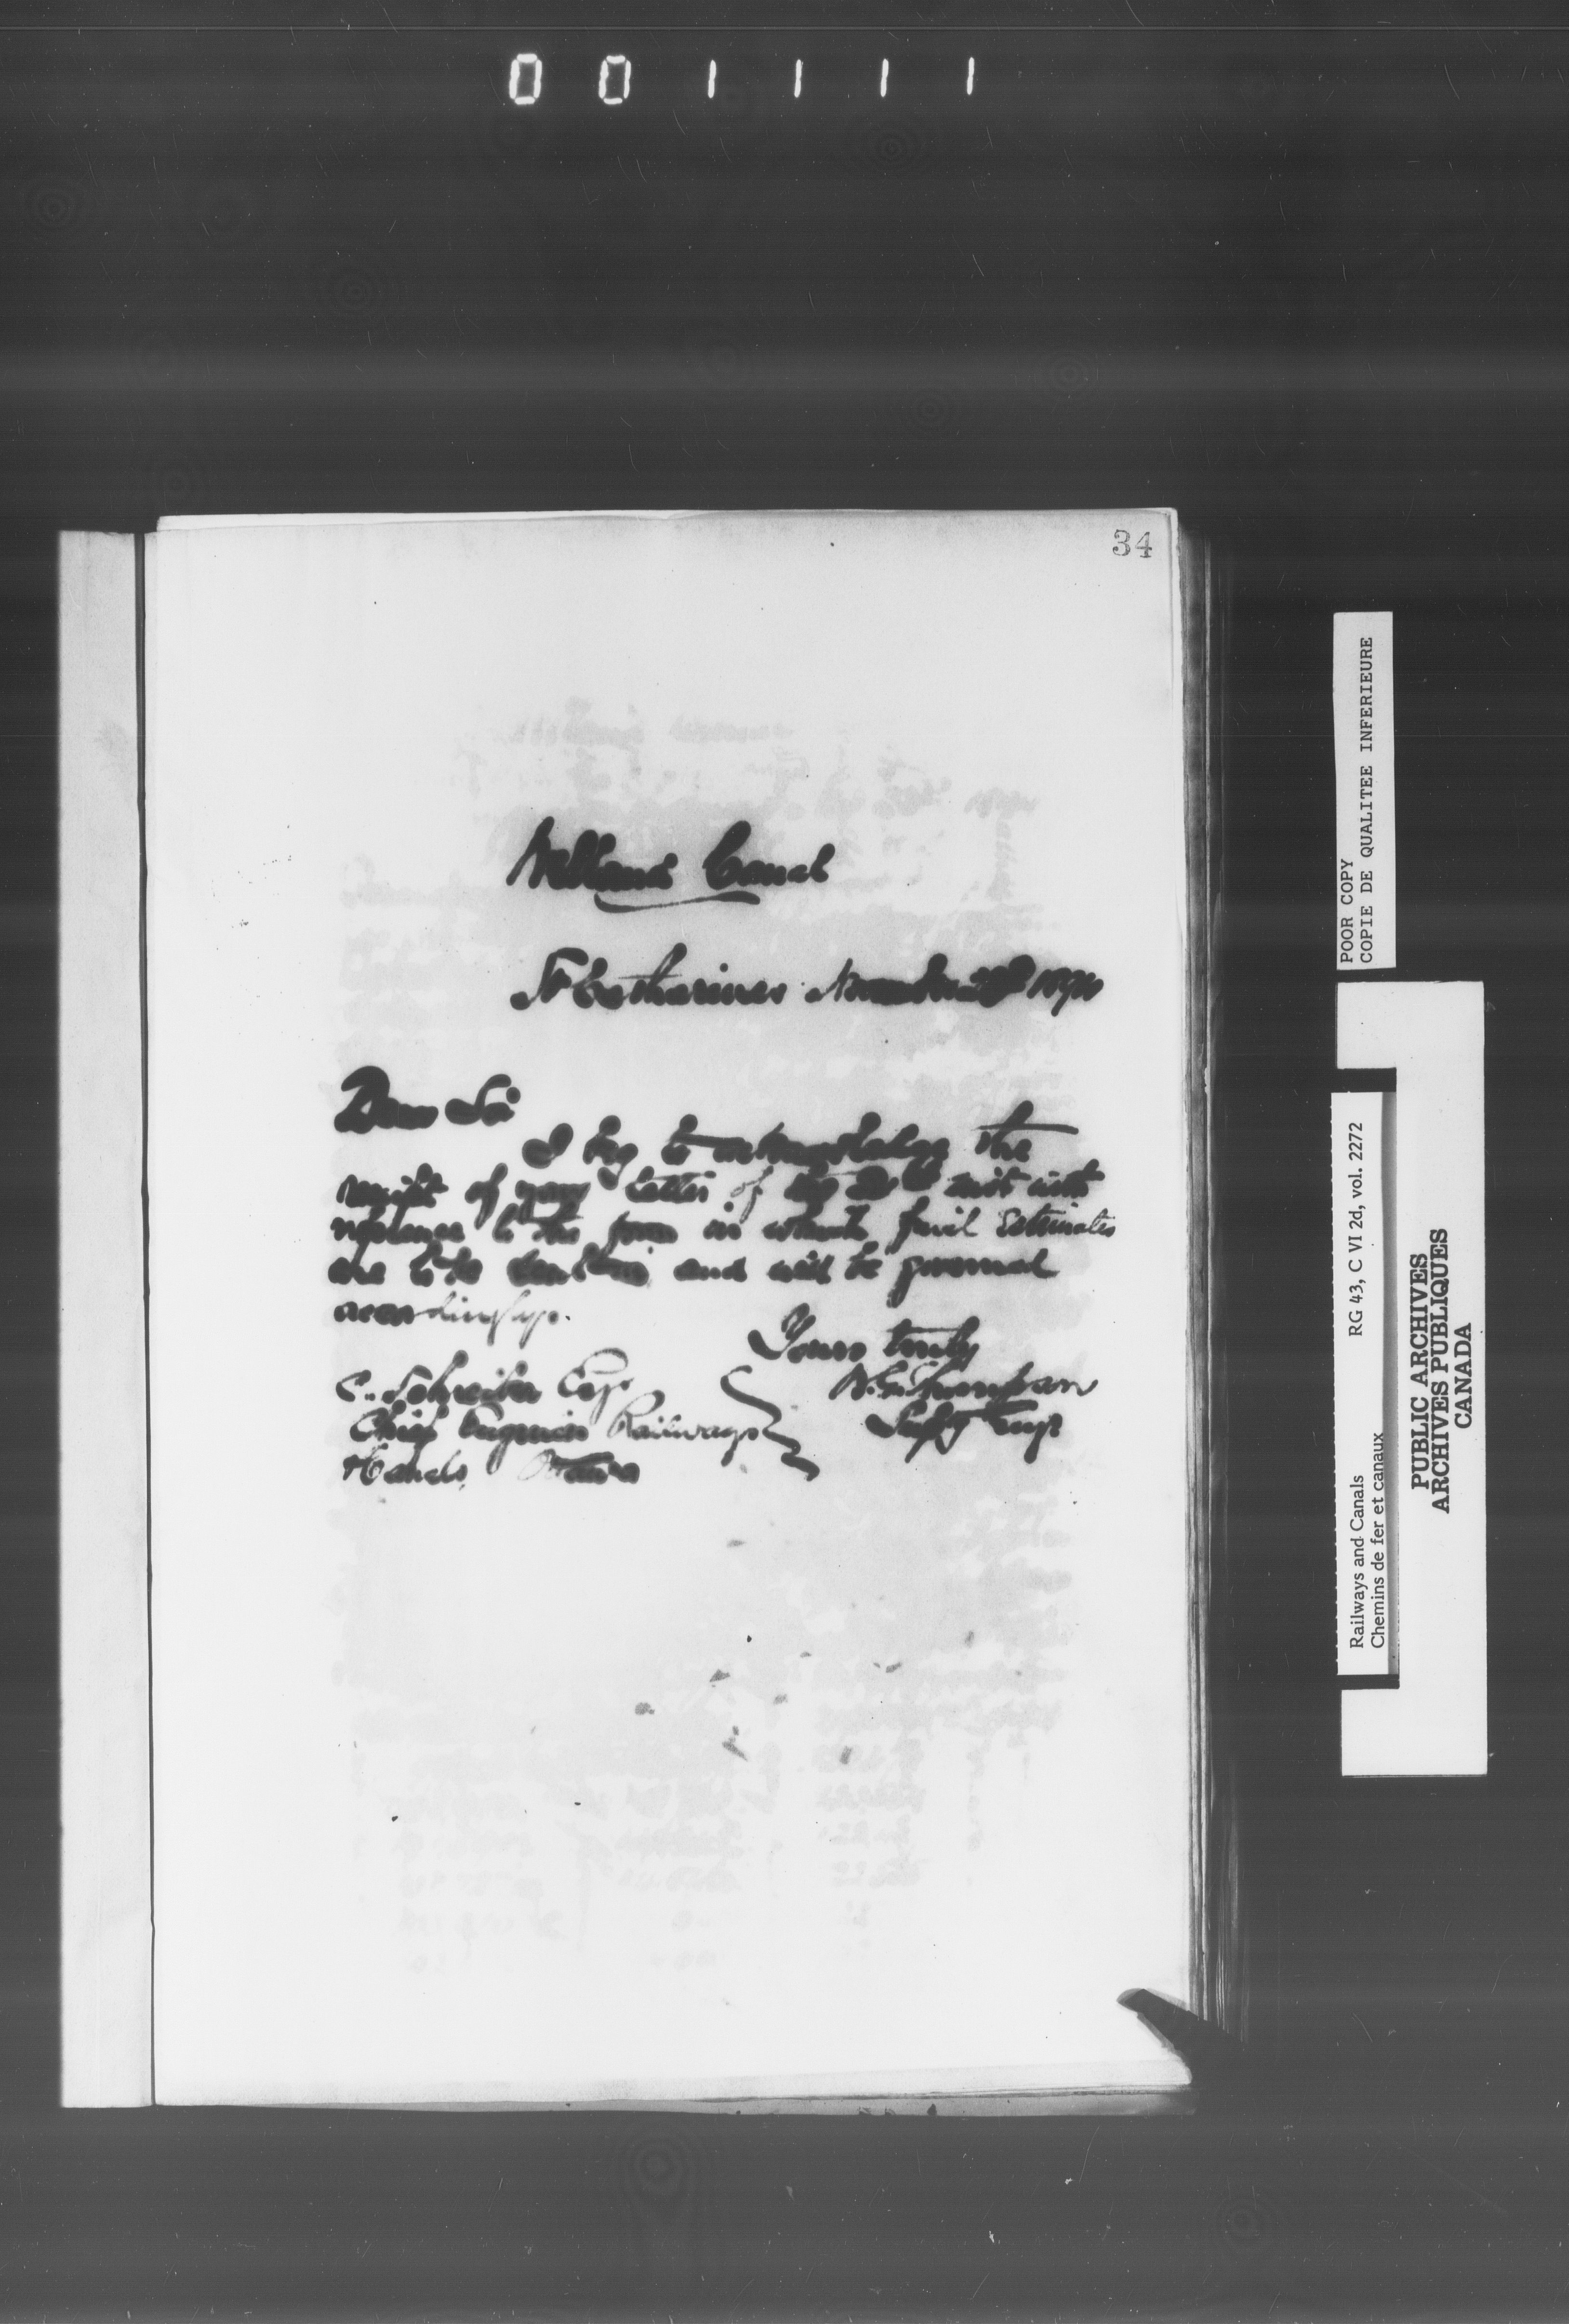 001111
34
Welland Canal
St Catharines November 1894
Dear Sir
I beg to acknowledge the
receipt of your letter of the inst with
reference to the form in which final Estimates
are to be and will be governed
accordingly.
Yours truly
C. Schreiber Esq. W.G. Thompson
Chief Engineer Railways Supt Engr
& Canals, Ottawa
POOR COPY
COPIE DE QUALITEE INFERIEURE
Railways and Canals RG 43, C VI 2d, vol. 2272
Chemins de fer et canaux
PUBLIC ARCHIVES
ARCHIVES PUBLIQUES
CANADA